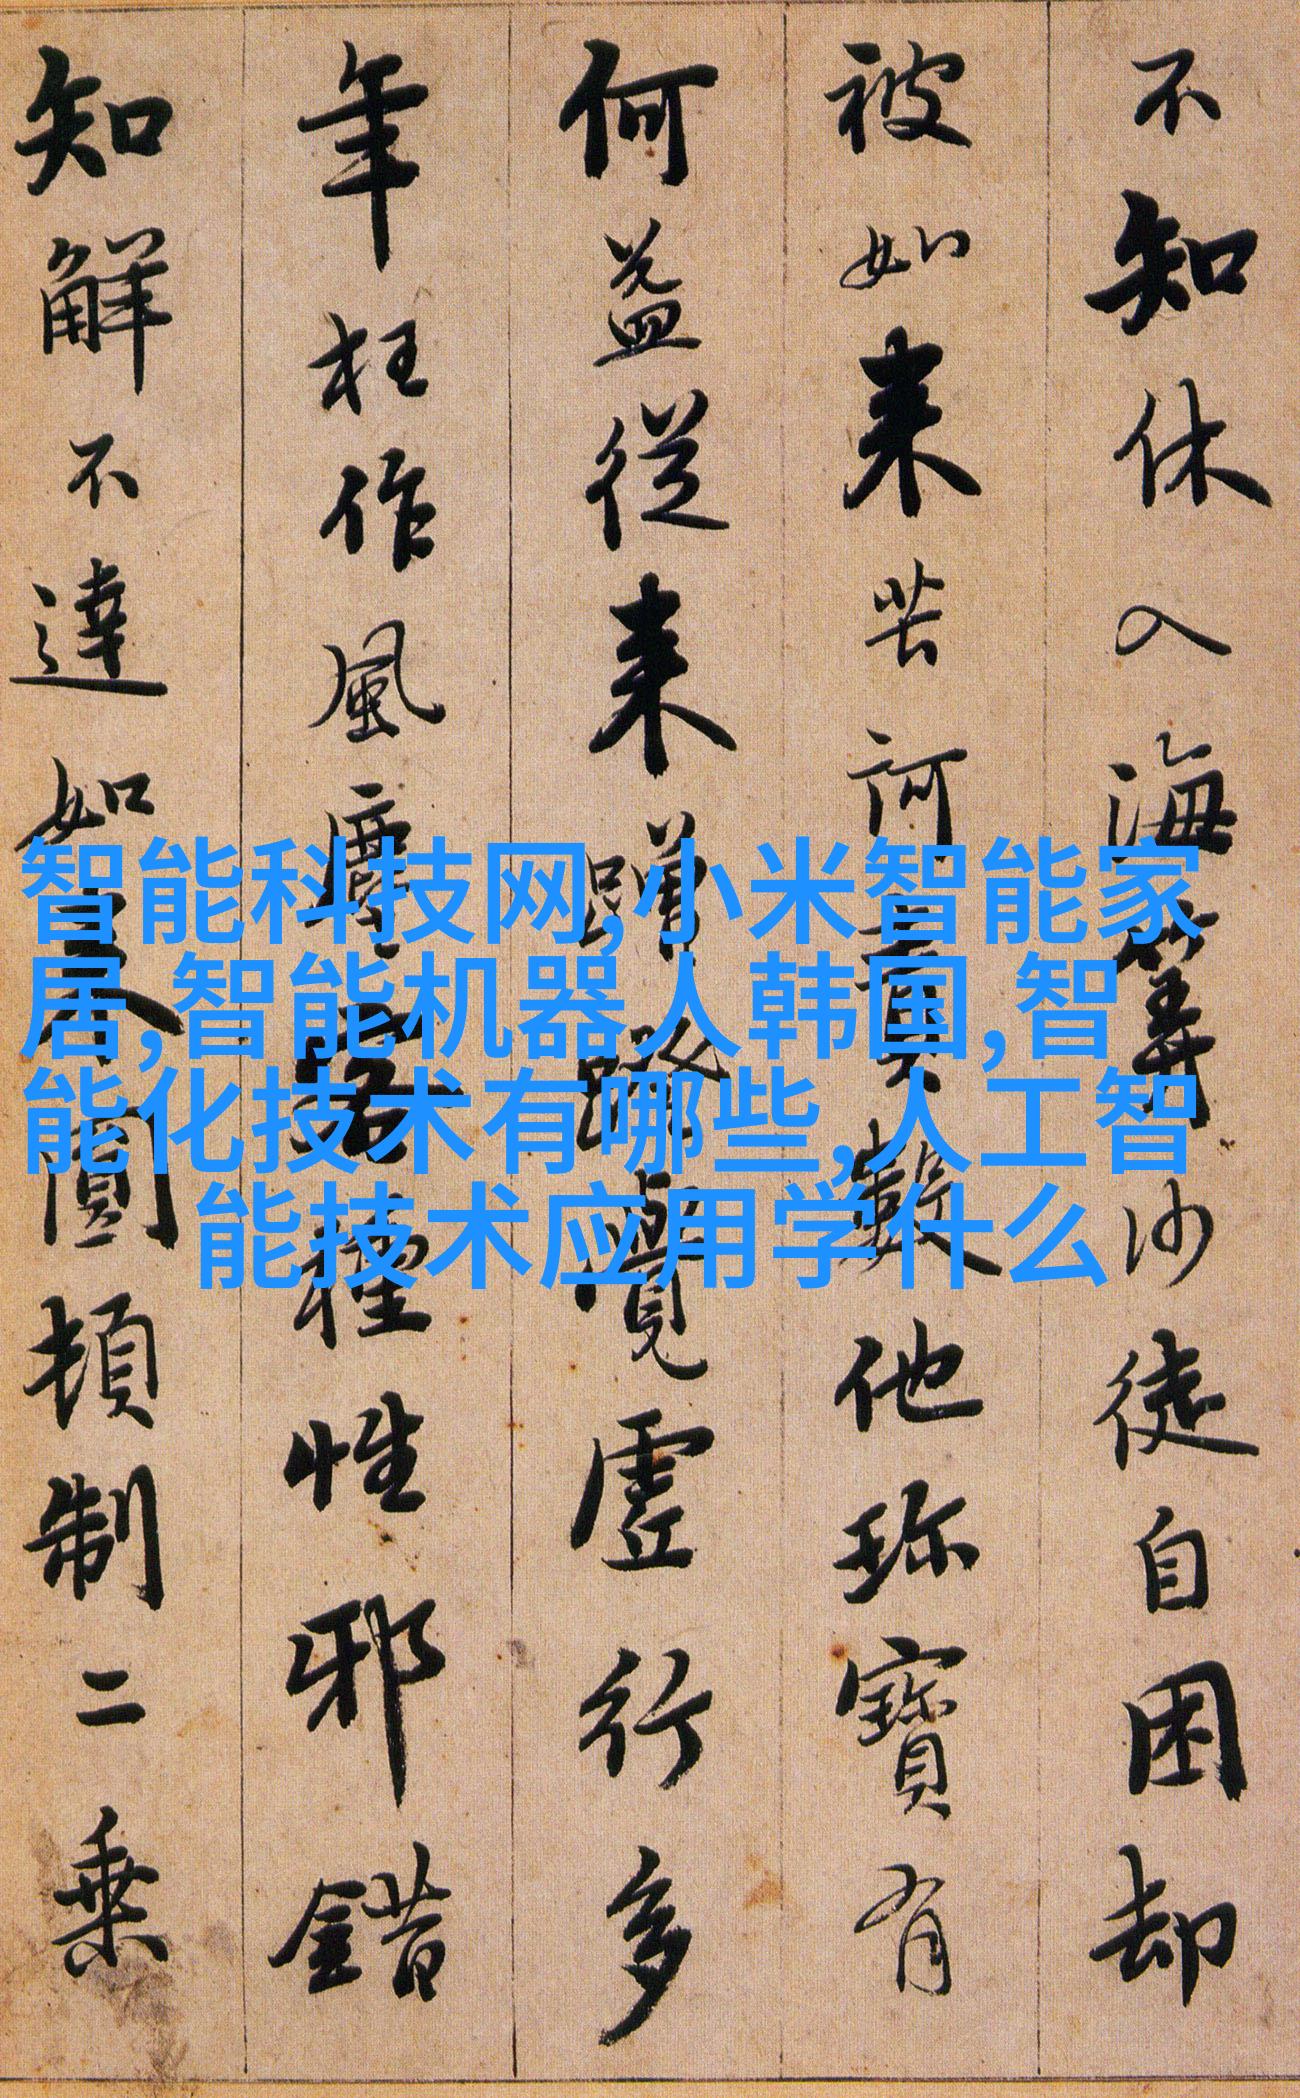 不知休入海筭沙徒自困却
被如来苦訶責數他珎寶有
何益從来蹭蹬覺虛行多
年枉作風塵客種性邪錯
知解不達如来圓頓制二乗
智能科技网,小米智能家
居,智能机器人韩国,智
能化技术有哪些,人工智
能技术应用学什么